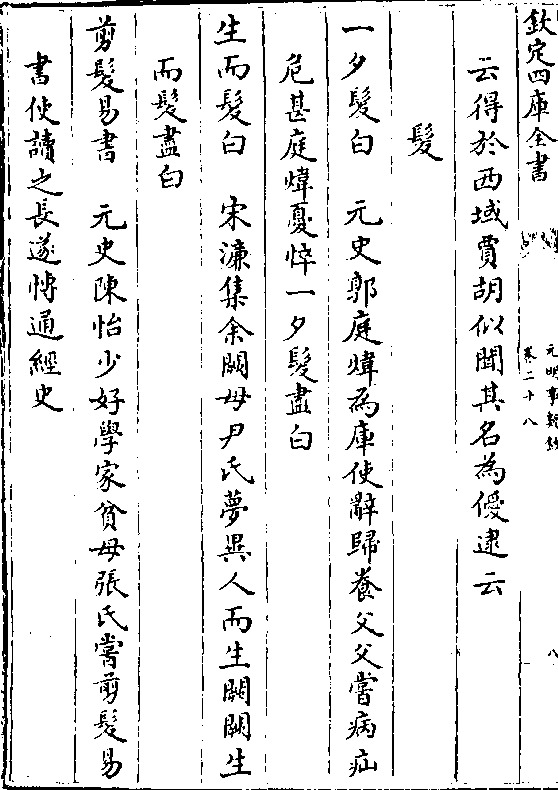 欽定四庫全書
元明事類鈔
卷二十八
八
云得於西域賈胡似聞其名為優逮云
髮
一夕髮白　元史郭庭煒為庫使辭歸養父父嘗病疝
危甚庭煒憂悴一夕髮盡白
生而髮白　宋濂集余闕母尹氏夢異人而生闕闕生
而髮盡白
剪髮易書　元史陳怡少好學家貧母張氏嘗剪髮易
書使讀之長遂博通經史